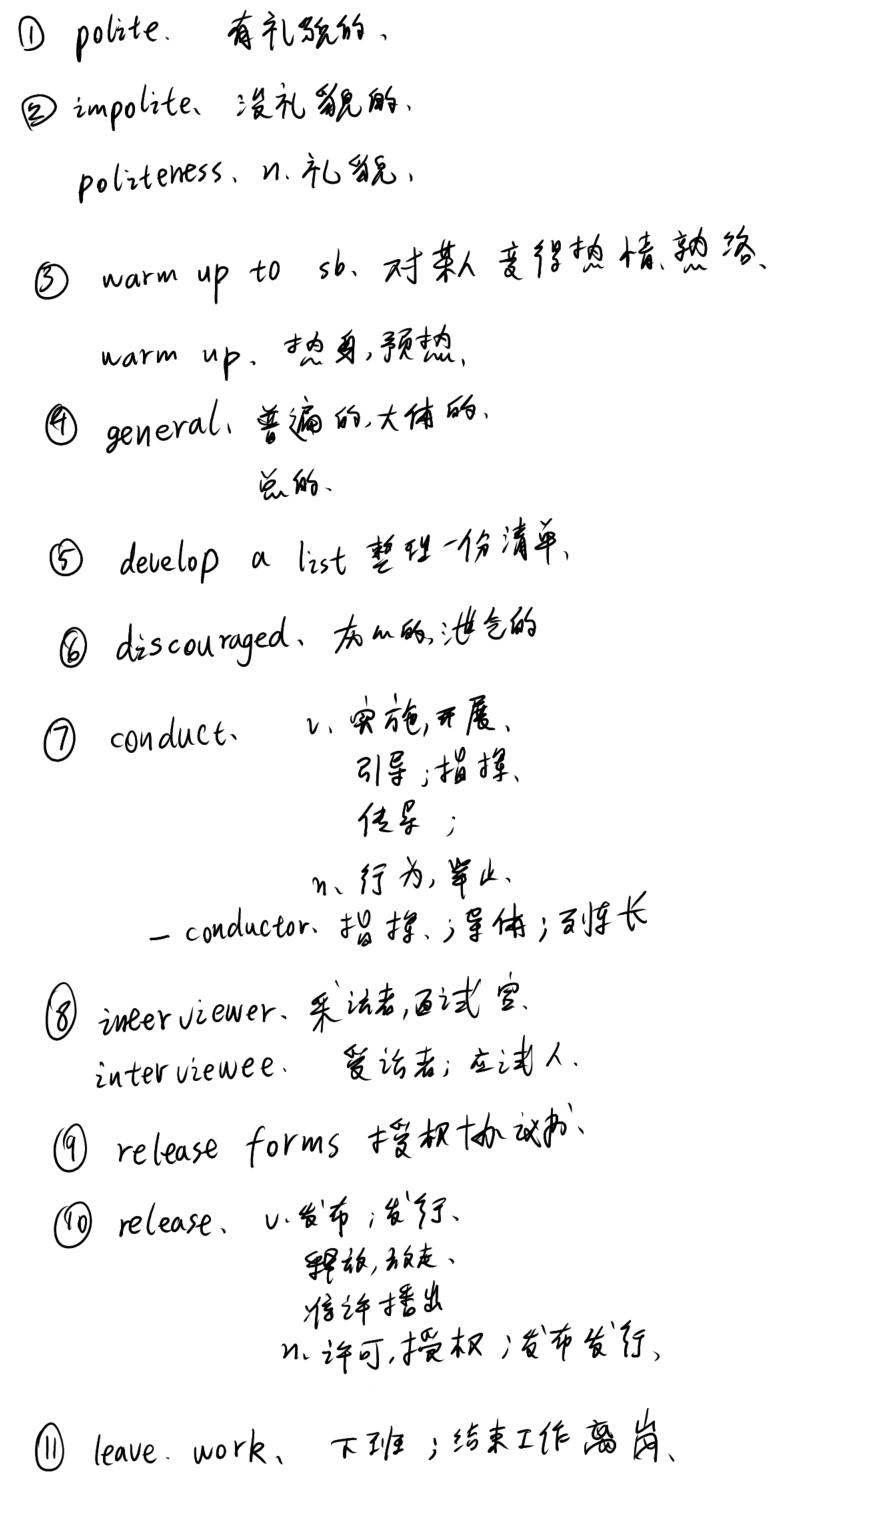 ① polite. 有礼貌的、
② impolite、没礼貌的、
politeness、n. 礼貌、
③ warm up to sb、对某人变得热情、熟络、
warm up、热身,预热、
④ general、普遍的,大体的、
总的、
⑤ develop a list 整理一份清单、
⑥ discouraged、灰心的,泄气的
⑦ conduct、 v、实施,开展、
引导;指挥、
传导;
n、行为,举止、
— conductor、指挥、;导体;列车长
⑧ interviewer、采访者,面试官、
interviewee. 受访者;应试人.
⑨ release forms 授权协议书、
⑩ release、 v.发布;发行、
释放,放走、
准许播出
n、许可,授权;发布发行、
⑪ leave. work、下班;结束工作离岗、